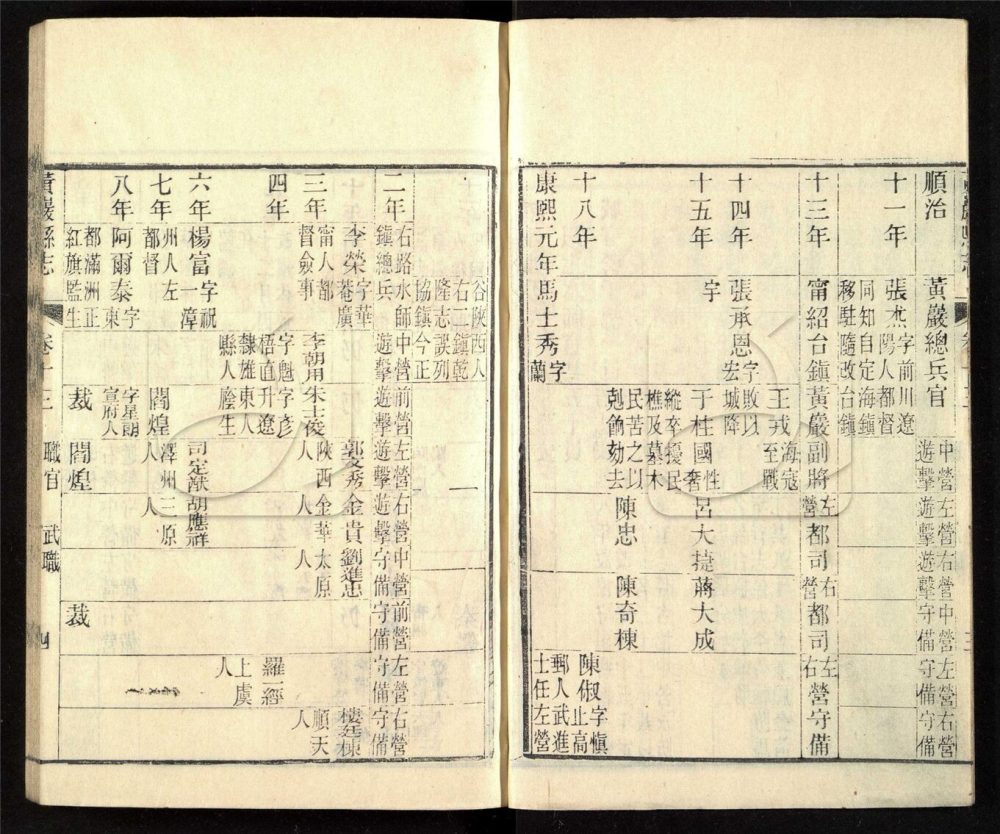 順治
黃巖總兵官
中營遊擊
左營遊擊
右營遊擊
中營守備
左營守備
右營守備
十一年
張杰字前川遼陽人都督
同知自定海鎮移駐隨改台鎮
十三年
甯紹台鎮
黃巖副將
左營都司
右營都司
左右營守備
十四年
張承恩字宏宇
王戎海寇至戰敗以城降
十五年
于桂國性奢縱卒擾民樵及墓木民苦之以剋餉劾去
呂大捷
蔣大成
十八年
陳忠
陳奇棟
陳俶字慎止高郵人武進士任左營
康熙元年
馬士秀字蘭
谷陝西人右二鎮乾隆志誤列協鎮今正
二年
右路水師鎮總兵
中營遊擊
前營遊擊
左營遊擊
右營遊擊
中營守備
前營守備
左營守備
右營守備
三年
李榮字華菴廣甯人都督僉事
李朝用字魁梧直隸雄縣人
朱志俊字彥升遼東人廕生
郭文秀陝西人
金貴金華人
劉進忠太原人
樓廷棟順天人
四年
羅一經上虞人
六年
楊富字祝一漳州人左都督
司定猷澤州人
胡應祥三原人
七年
閻煌字星朗宣府人
八年
阿爾泰字東都滿洲正紅旗監生
裁
閻煌
裁
黃巖縣志
卷十三
職官
武職
四